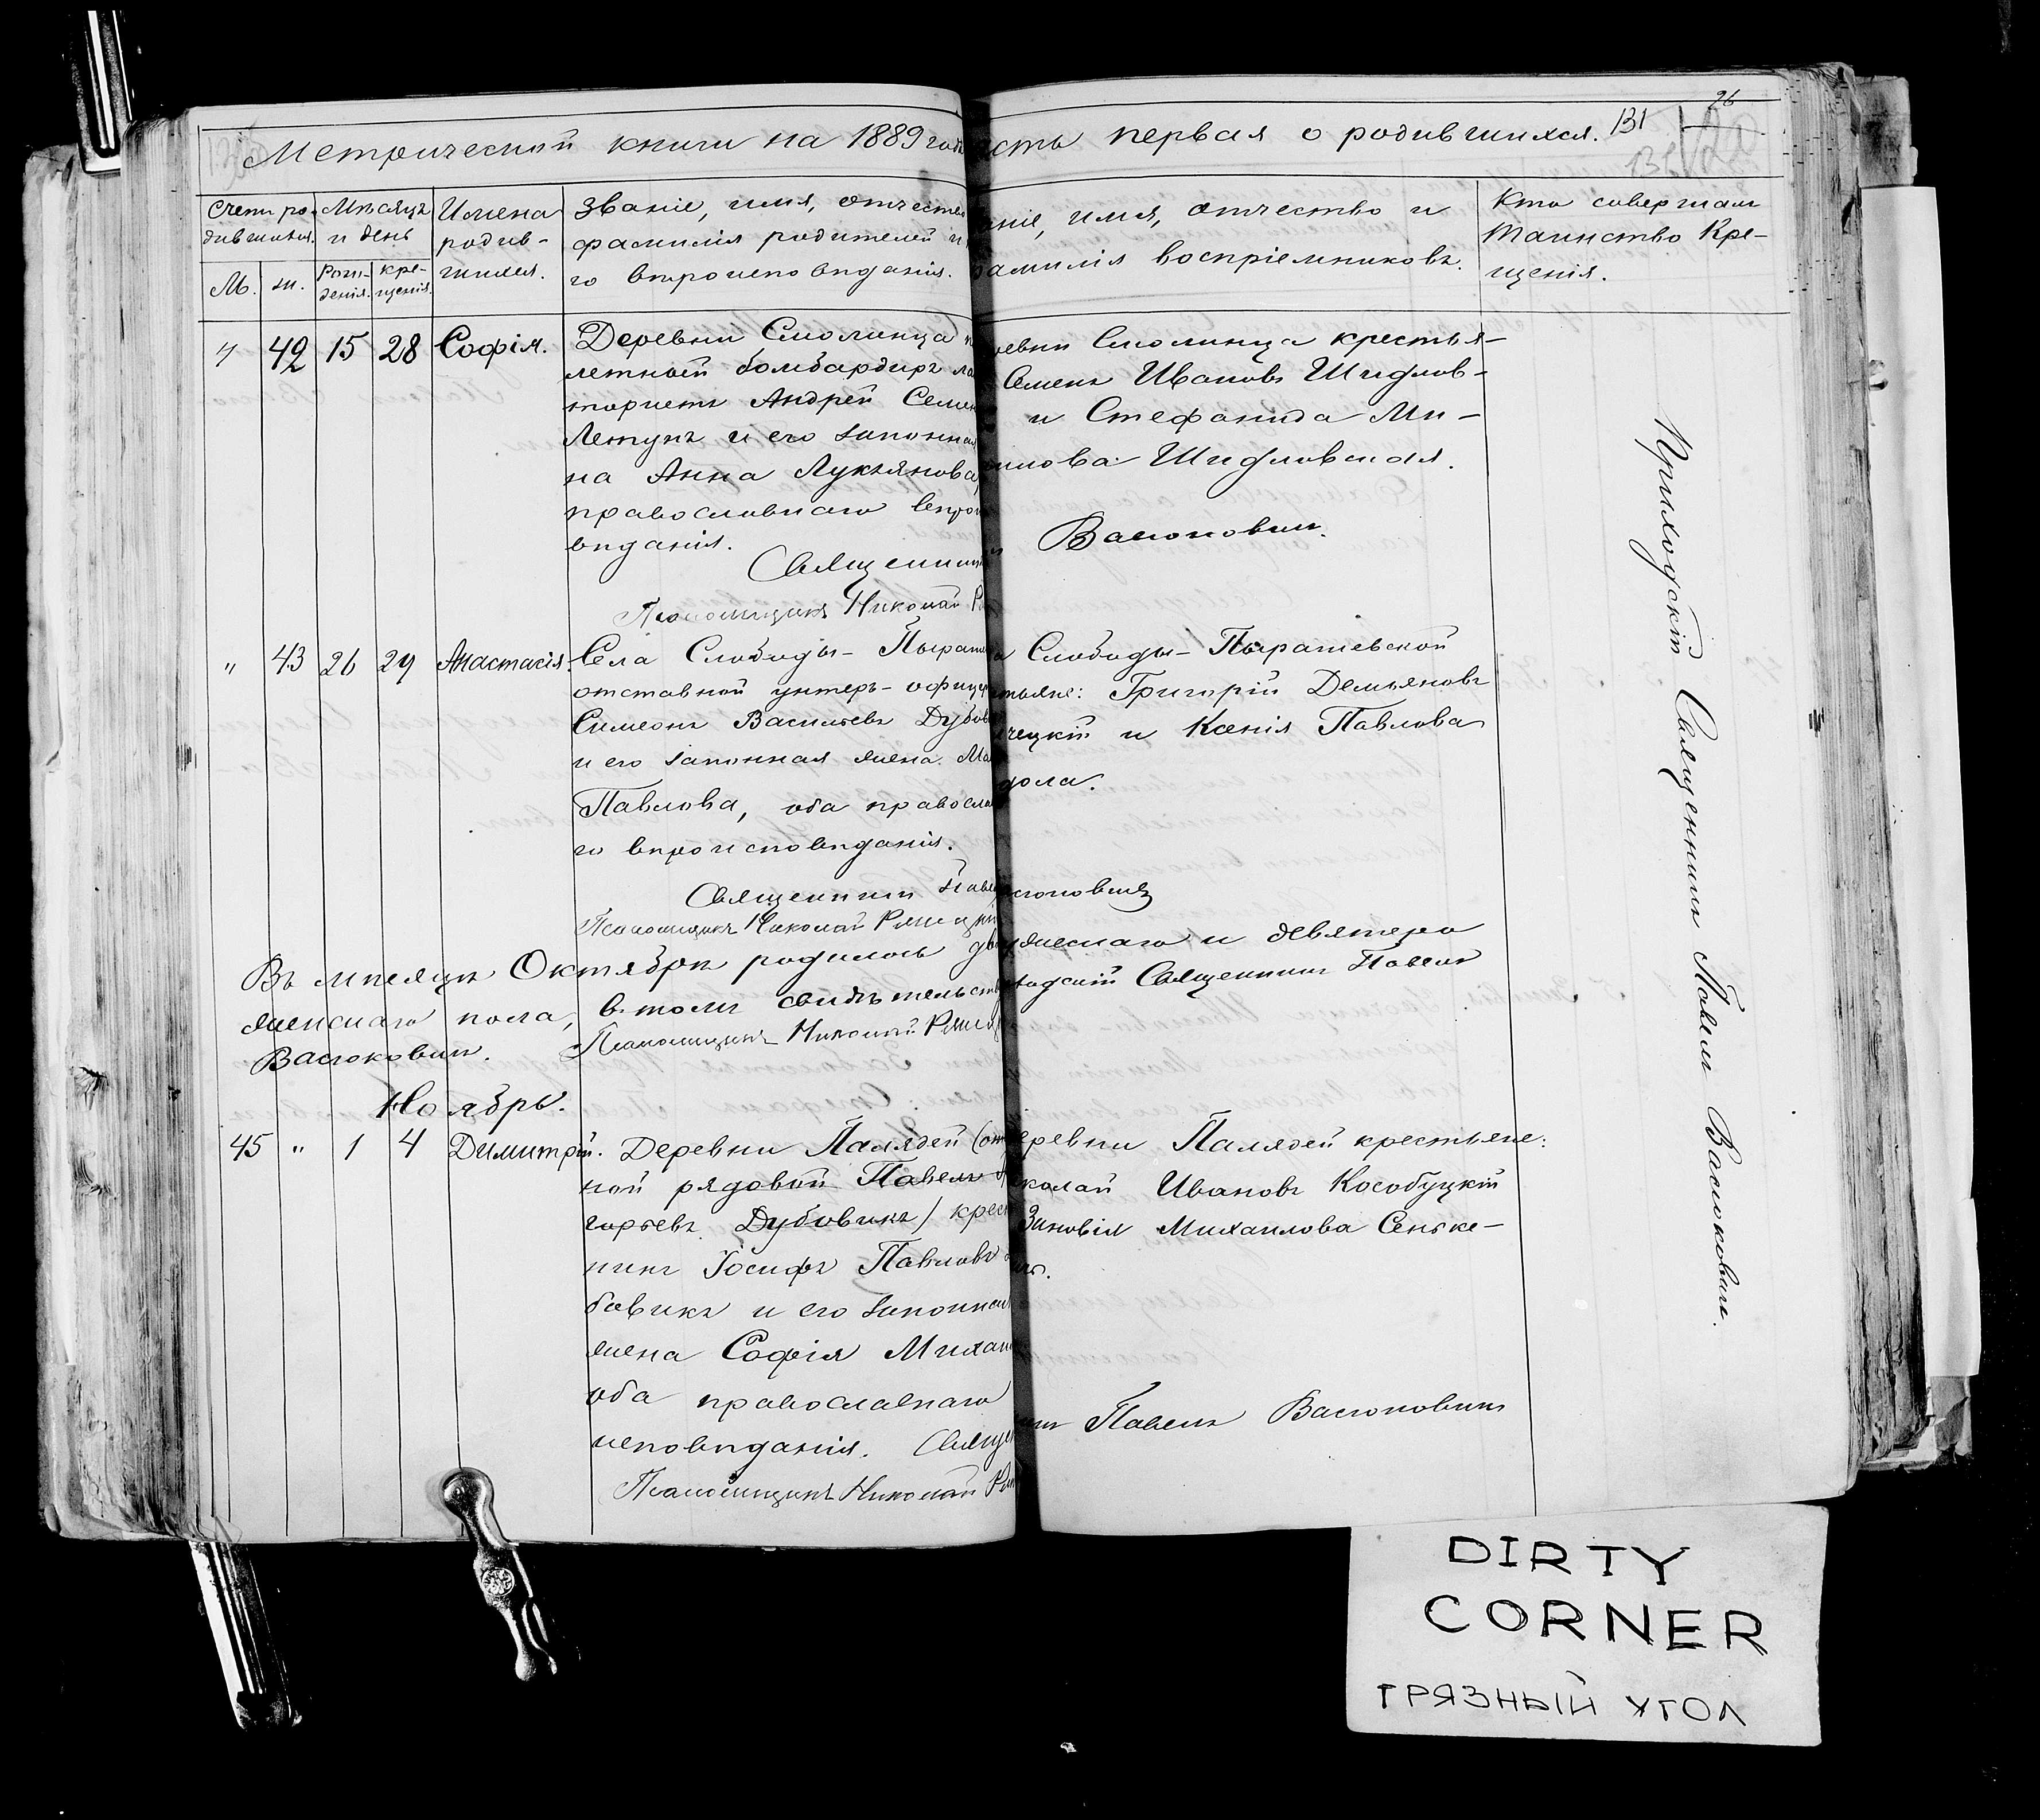 26
Метрической книги на 1889 годъ
сть первая о родившихся. 131
Счетъ ро-
дившихся.
Мѣсяцъ
и день
Имена
родив-
шихся.
Званіе, имя, отчество
фамилія родителей и
го вѣроисповѣданія.
аніе, имя, отчество и
фамилія воспріемниковъ.
Кто совершалъ
таинство Кре-
щенія.
М. ж. Рож-
денія. кре-
щенія.
" 42 15 28 Софія.
Деревни Смолинца
летный бомбардиръ ла
тористъ Андрей Семен
Летунъ и его законная
на Анна Лукьянова,
православнаго вѣрои
вѣданія.
Священникъ
Псаломщикъ Николай
ревни Смолинца крестья-
Семенъ Ивановъ Шидлов-
и Стефанида Ми-
йлова Шидловская.
Васюковичъ.
" 43 26 29 Анастасія.
Села Слободы-Пыраш
отставной унтеръ-офице
Симеонъ Васильевъ Дубов
и его законная жена Ма
Павлова, оба православ
го вѣроисповѣданія.
Священникъ Павел
Псаломщикъ Николай
а Слободы-Пырашевской
стьяне: Григорій Демьяновъ
чецкій и Ксенія Павлова
дола.
сюковичъ
Въ мѣсяцѣ Октябрѣ родилось дво
ужескаго и девятеро
женскаго пола, в томъ свидѣтельств
ходскій Священникъ Павелъ
Васюковичъ. Псаломщикъ Николай
Ноябрь.
45 " 1 4 Димитрій.
Деревни Палядей (от
ной рядовой Павелъ
горьевъ Дубовикъ) крест
нинъ Іосифъ Павловъ
бовикъ и его законная
жена Софія Михаи
оба православнаго
исповѣданія. Свяще
Псаломщикъ Николай
еревни Палядей крестьяне:
колай Ивановъ Кособуцкій
Зиновія Михаилова Сеньке-
Павелъ Васюковичъ
Приходскій Священникъ Павелъ Васюковичъ.
DIRTY
CORNER
ГРЯЗНЫЙ УГОЛ